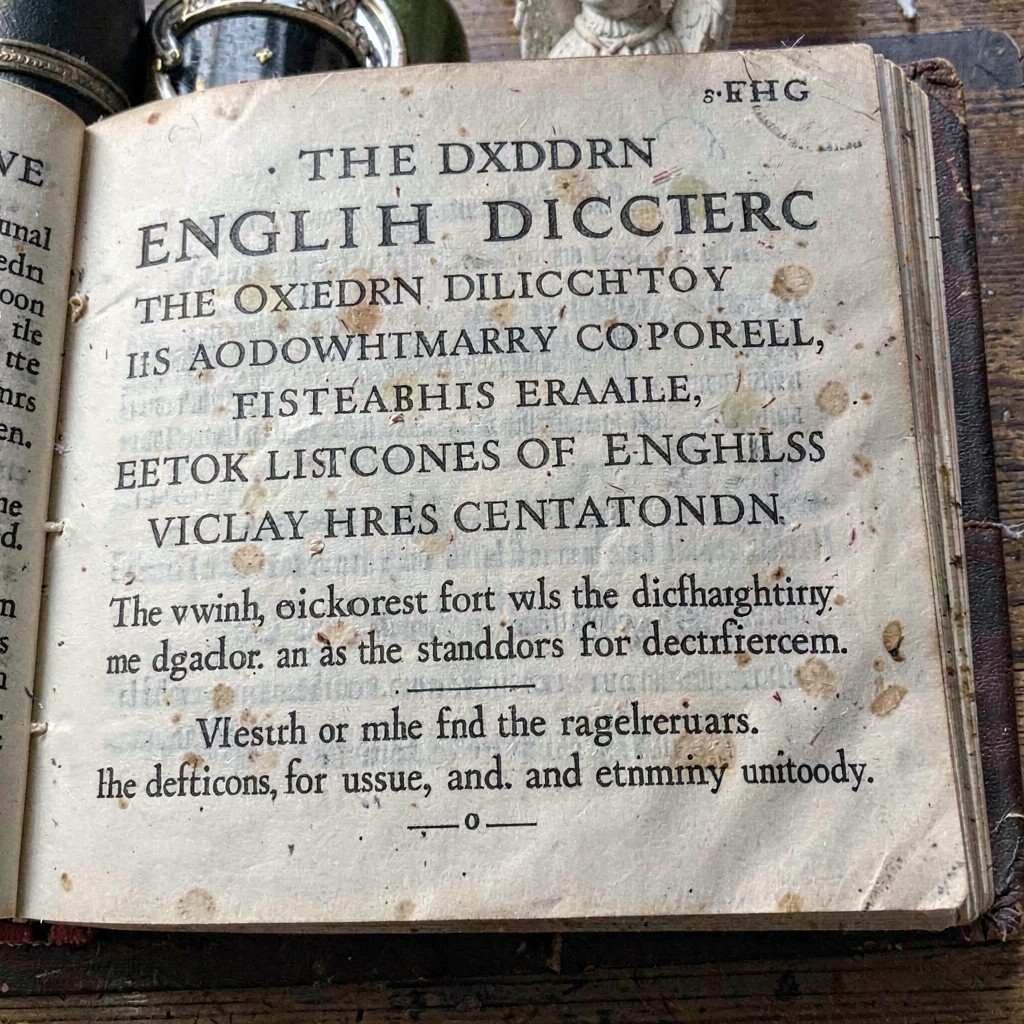 VE
unal
edn
oon
tle
tte
nrs
en.
ne
d.
n
s
s·FHG
· THE DXDDRN
ENGLIH DICCTERC
THE OXIEDRN DILICCHTOY
IIS AODOWHTMARRY CO'PORELL,
FISTEABHIS ERAAILE,
EETOK LISTCONES OF E·NGHILSS
VICLAY HRES CENTATONDN.
The vwinh, oickorest fort wls the dicfharghtiny.
me dgador. an as the standdors for dectrfiercem.
Vlesth or mhe fnd the ragelreruars.
lhe defticons, for ussue, and. and etnminy unitoody.
—o—